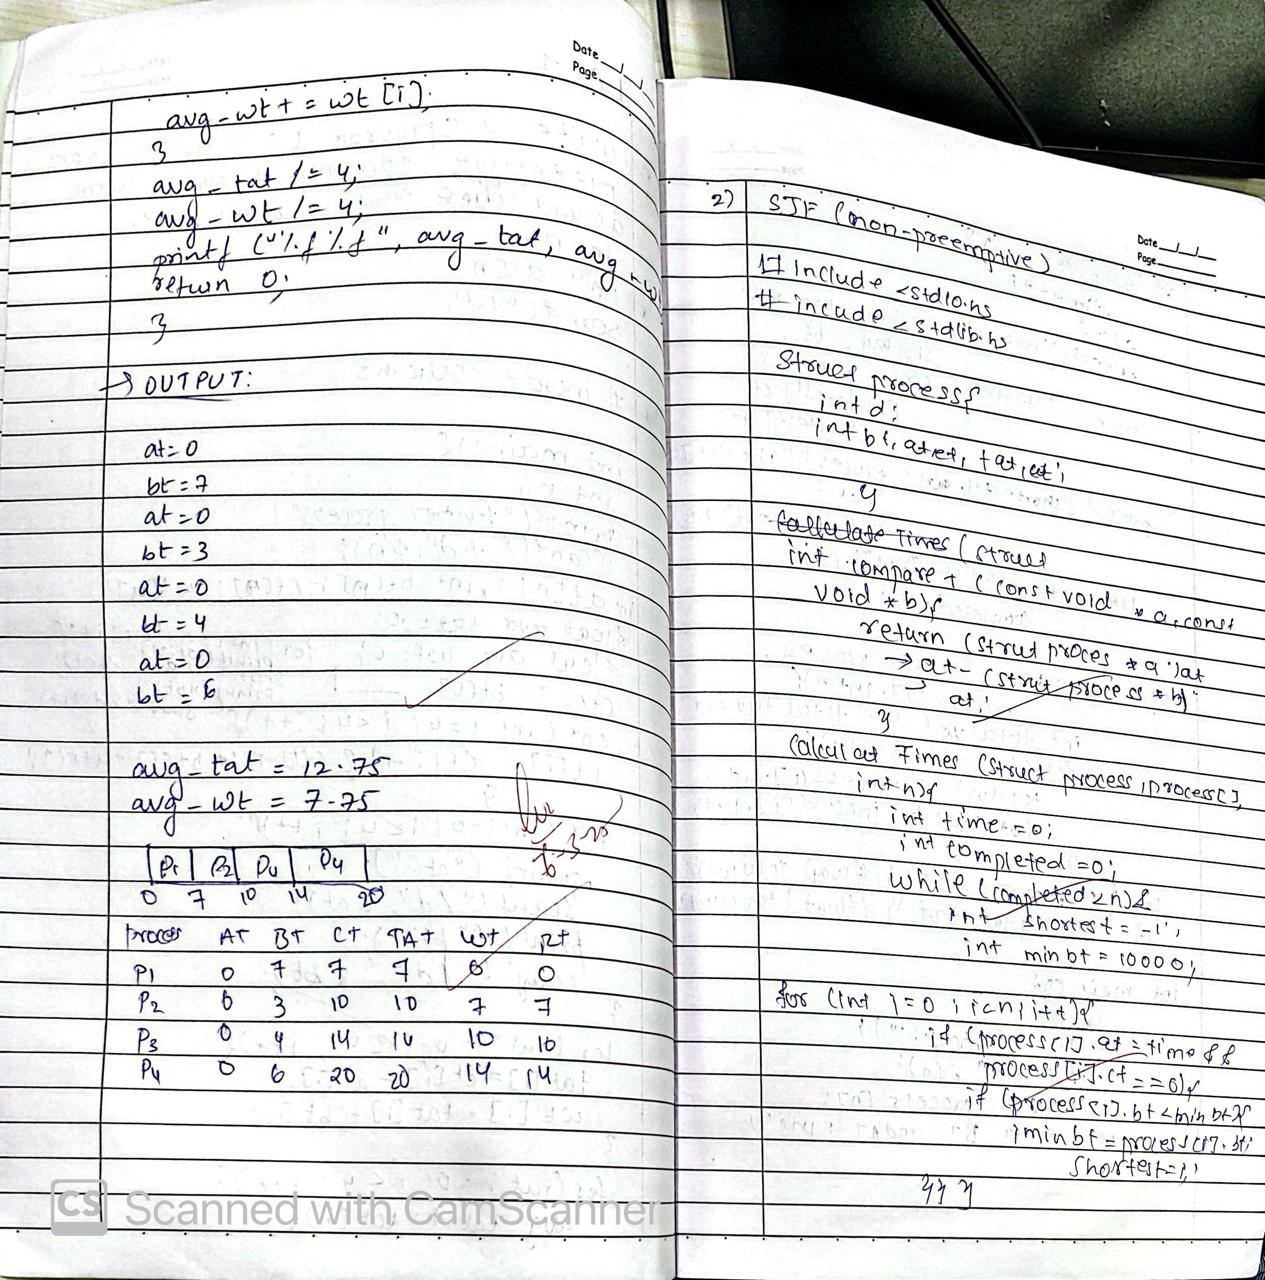 Date
Page
avg-wt + = wt [i];
}
avg-tat /= 4;
avg-wt /= 4;
printf ("%.f %.f", avg-tat, avg-w
return 0;
}
→ OUTPUT:
at=0
bt=7
at=0
bt=3
at=0
bt=4
at=0
bt=6
avg-tat = 12.75
avg-wt = 7.75
P1 P2 P4 P4
0 7 10 14 20
Process AT BT CT TAT WT RT
P1 0 7 7 7 0 0
P2 0 3 10 10 7 7
P3 0 4 14 14 10 10
P4 0 6 20 20 14 14
Date
Page
2) SJF (non-preemptive)
# include <stdio.h>
# incude <stdlib.h>
Struct process{
int d;
int bt, at, ct, tat, wt;
}
Callculate Times (struct
int compare + (const void * a, const
void * b){
return (strut proces * a)at
→ at - (strut process * b)
at;
}
Calculat Times (struct process, process[],
int n){
int time = 0;
int completed = 0;
while (completed < n){
int shortest = -1;
int minbt = 10000;
for (int i=0; i<n; i++){
if (process[i].at = time &&
process[i].ct == 0){
if (process[i].bt < minbt){
minbt = process[i].bt;
shortest=i;
}}}
CS Scanned with CamScanner